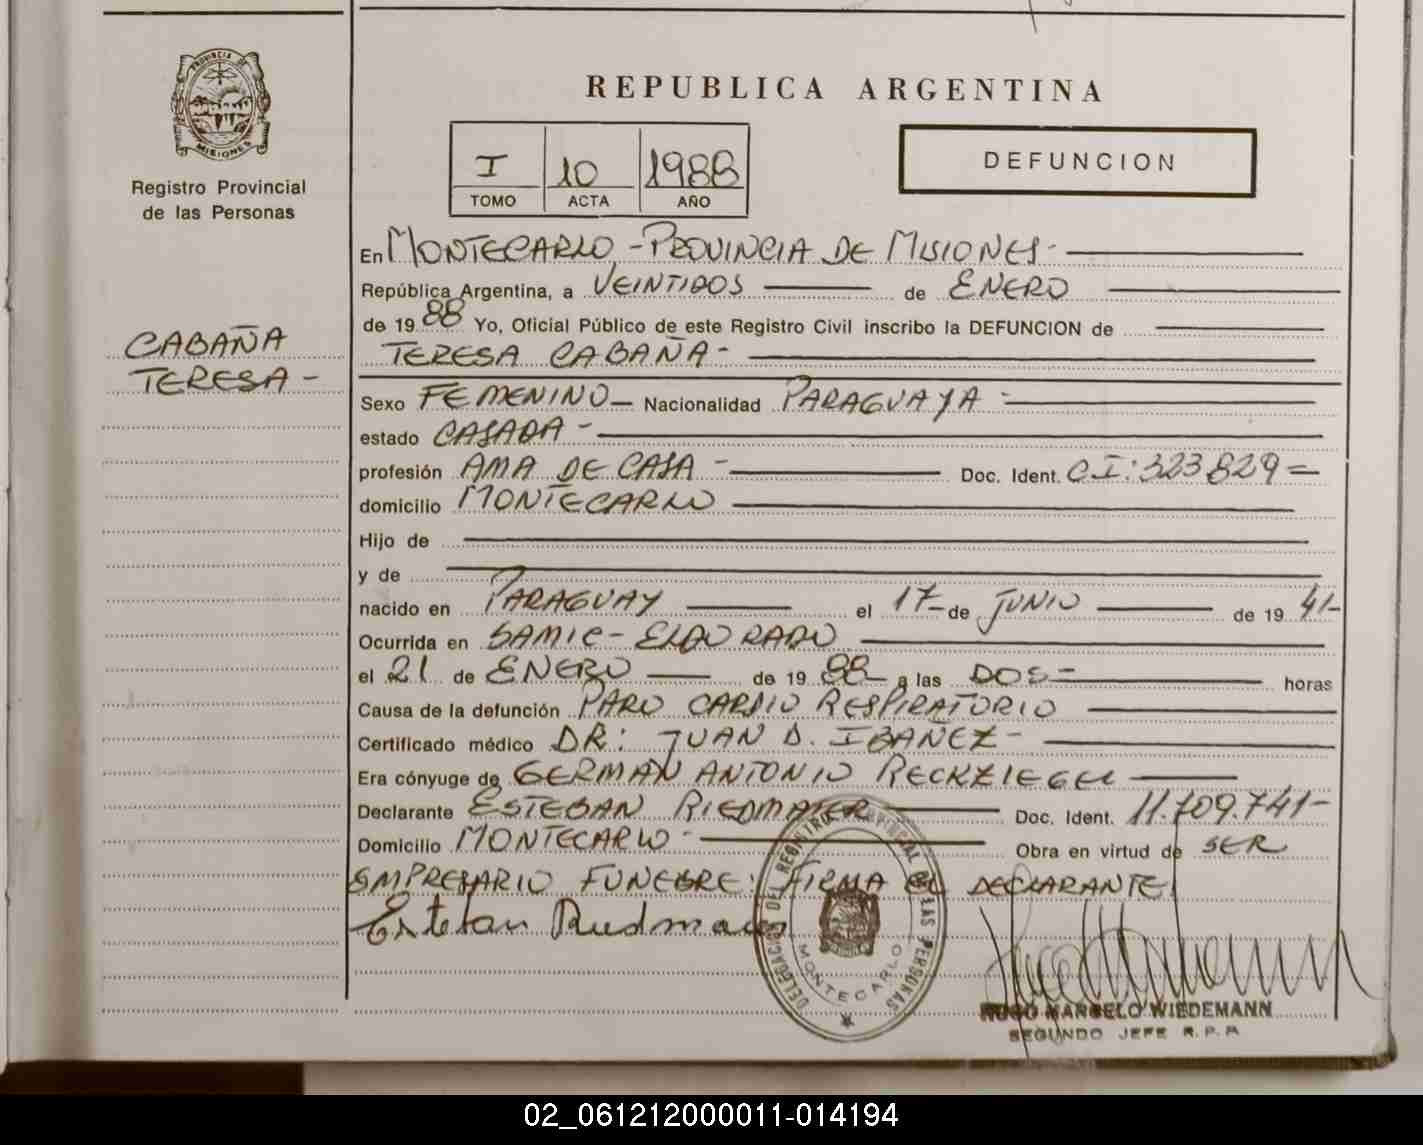 PROVINCIA DE
MISIONES
Registro Provincial
de las Personas
CABAÑA
TERESA -
REPUBLICA ARGENTINA
I 10 1988
TOMO ACTA AÑO
DEFUNCION
En MONTECARLO - PROVINCIA DE MISIONES -
República Argentina, a VEINTIDOS de ENERO
de 19 88 Yo, Oficial Público de este Registro Civil inscribo la DEFUNCION de
TERESA CABAÑA -
Sexo FEMENINO - Nacionalidad PARAGUAYA -
estado CASADA -
profesión AMA DE CASA - Doc. Ident. CI: 323829 =
domicilio MONTECARLO
Hijo de
y de
nacido en PARAGUAY el 17 - de JUNIO de 19 41 -
Ocurrida en SAMIC - ELDORADO
el 21 de ENERO de 19 88 - a las DOS = horas
Causa de la defunción PARO CARDIO RESPIRATORIO
Certificado médico DR: JUAN D. IBAÑEZ -
Era cónyuge de GERMAN ANTONIO RECKZIEGEL
Declarante ESTEBAN RIEDMAIER Doc. Ident. 11.709.741 -
Domicilio MONTECARLO - Obra en virtud de SER
EMPRESARIO FUNEBRE: FIRMA EL DECLARANTE
Esteban Riedmaier
DELEGACION DEL REGISTRO PROVINCIAL DE LAS PERSONAS
MONTECARLO
HUGO MARCELO WIEDEMANN
SEGUNDO JEFE R.P.P.
02_061212000011-014194